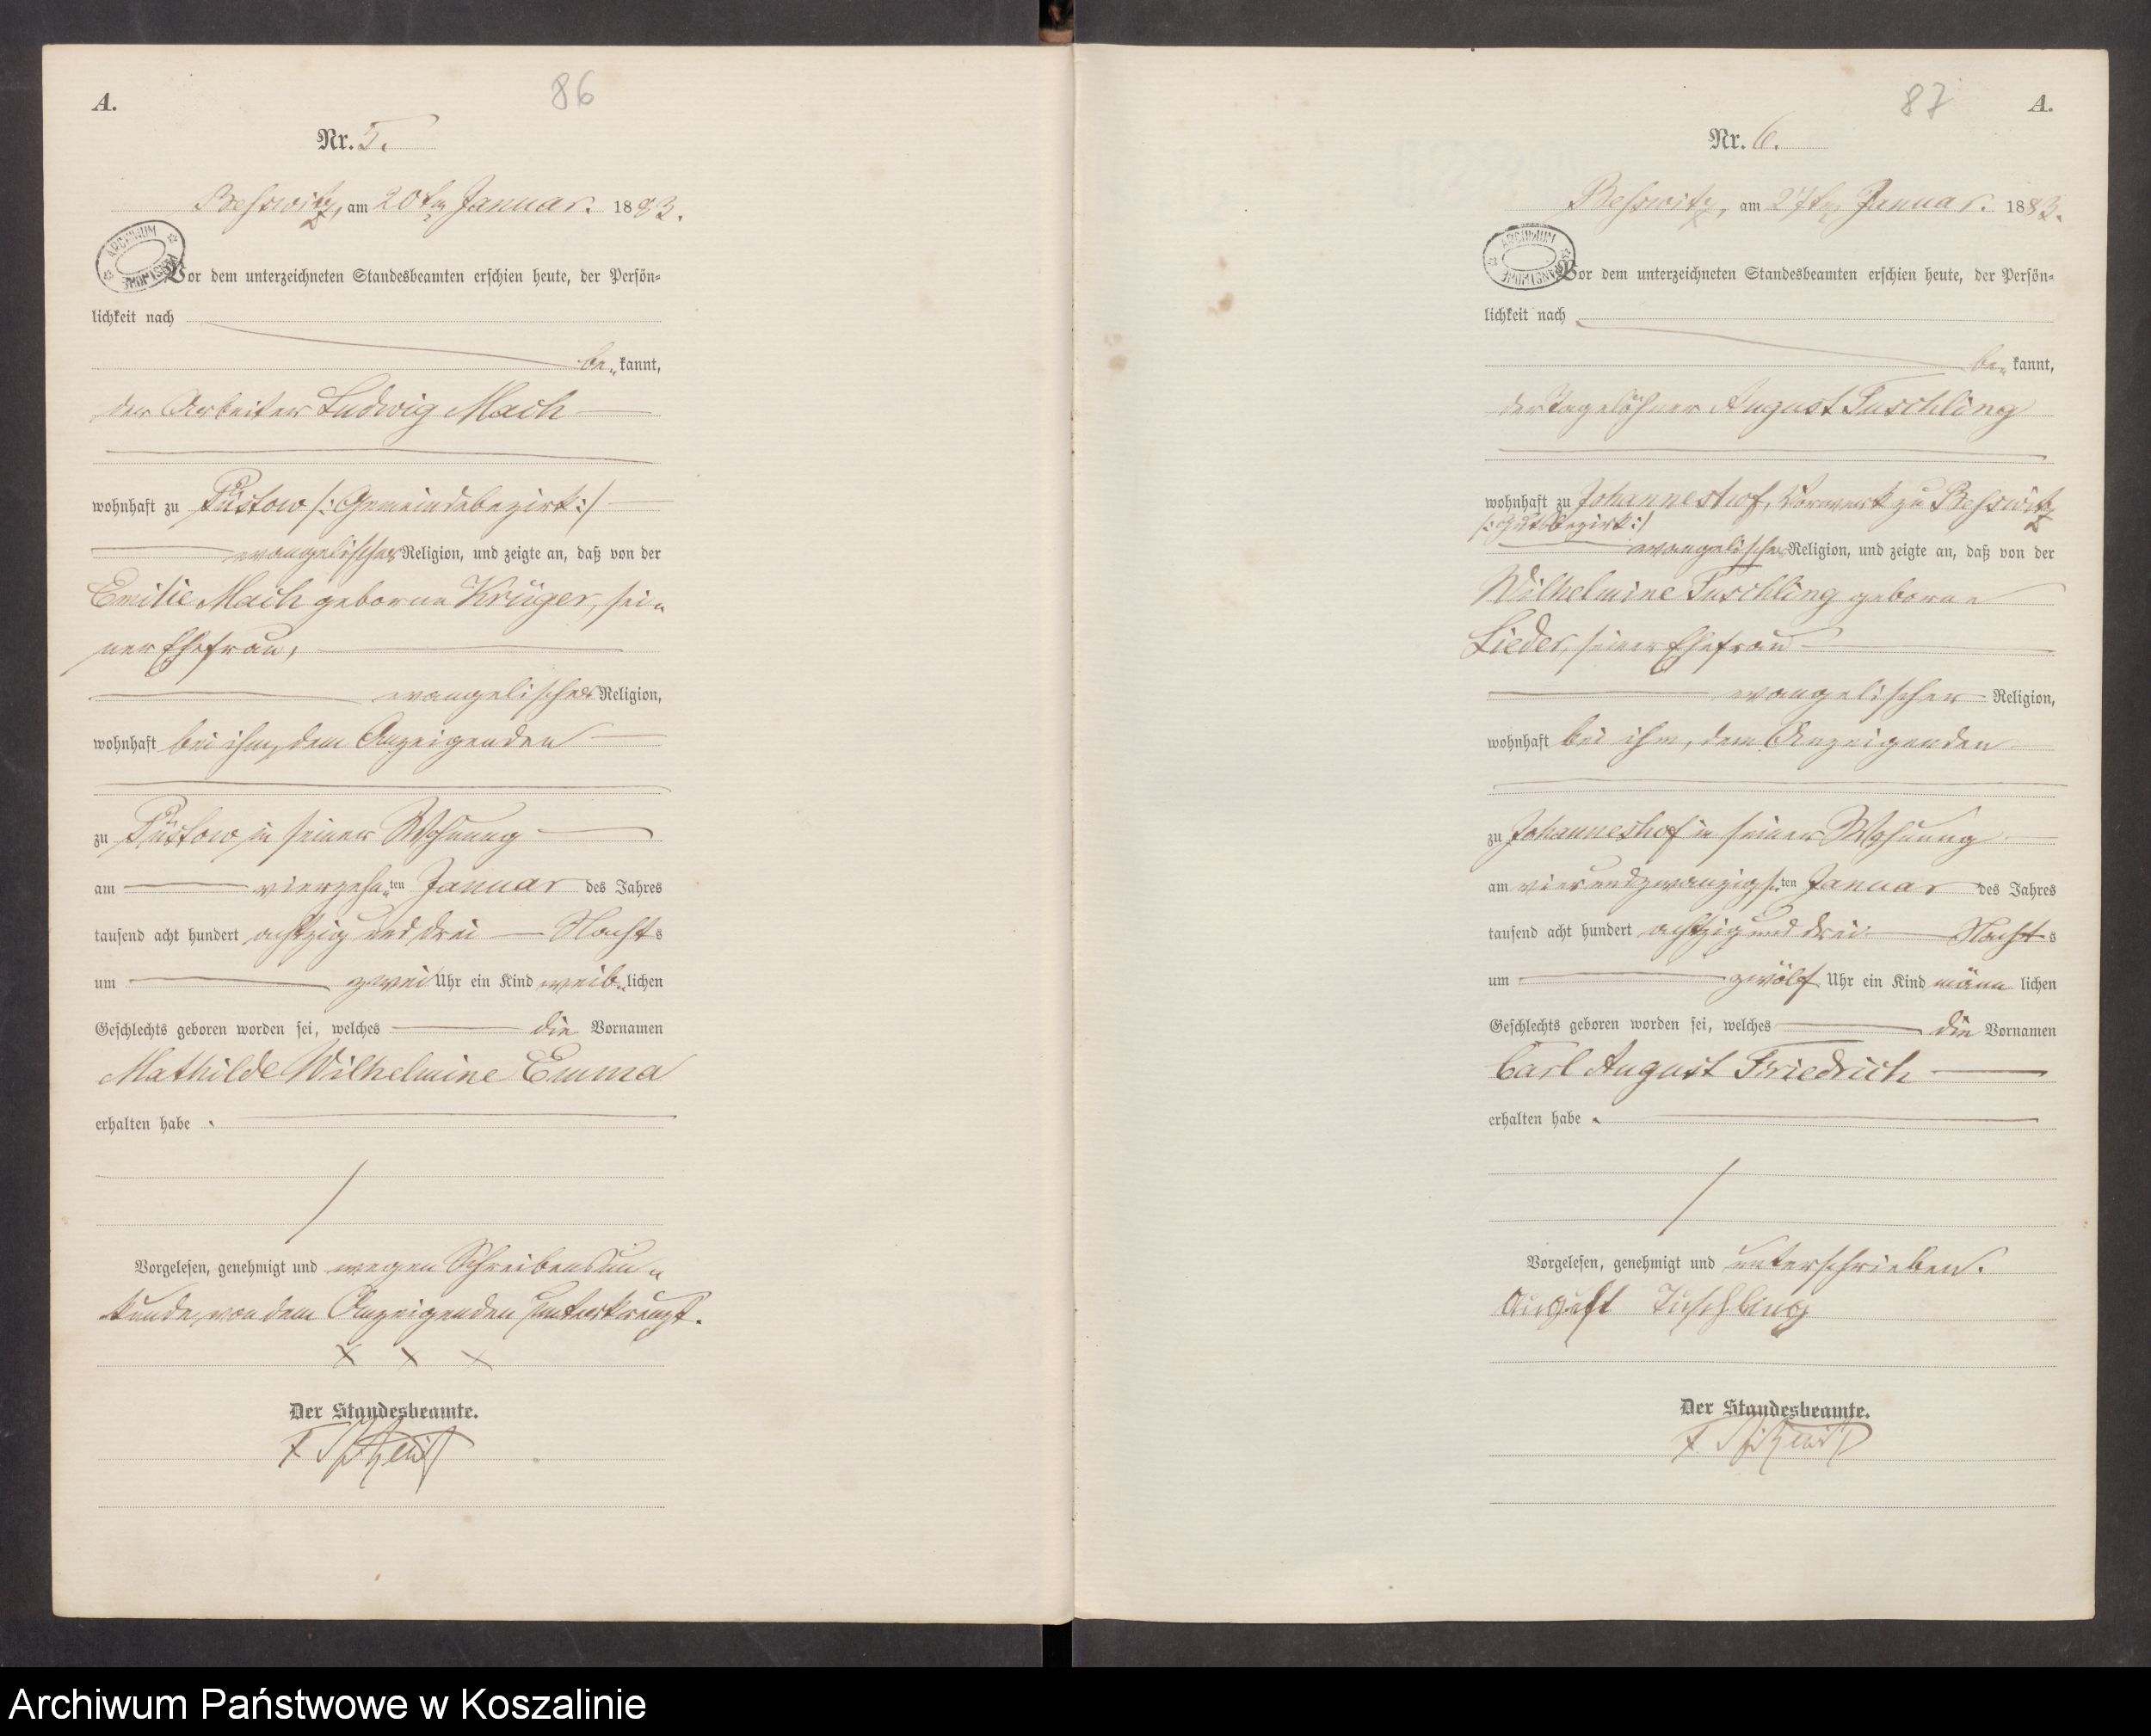 A.
86
Nr. 5.
Behswitz, am 20ten Januar. 1883.
ARCHIWUM
Vor dem unterzeichneten Standesbeamten erschien heute, der Persön=
lichkeit nach
be= kannt,
der Arbeiter Ludwig Mach
wohnhaft zu Püstow /: Gemeindebezirk :/
evangelischer Religion, und zeigte an, daß von der
Emilie Mach geborne Krüger, sei=
ner Ehefrau,
evangelischer Religion,
wohnhaft bei ihm, dem Anzeigenden
zu Püstow in seiner Wohnung
am vierzehn=ten Januar des Jahres
tausend acht hundert achtzig und drei Nachts
um zwei Uhr ein Kind weib=lichen
Geschlechts geboren worden sei, welches die Vornamen
Mathilde Wilhelmine Emma
erhalten habe.
Vorgelesen, genehmigt und wegen Schreibensun=
kunde, von dem Anzeigenden unterkreuzt.
x x x
Der Standesbeamte.
87
A.
Nr. 6.
Behswitz, am 27ten Januar. 1883.
ARCHIWUM
Vor dem unterzeichneten Standesbeamten erschien heute, der Persön=
lichkeit nach
be= kannt,
der Tagelöhner August Tuschling
wohnhaft zu Johanneshof, Vorwerk zu Behswitz
/: Gutsbezirk :/
evangelischer Religion, und zeigte an, daß von der
Wilhelmine Tuschling geborne
Lieder, seiner Ehefrau
evangelischer Religion,
wohnhaft bei ihm, dem Anzeigenden
zu Johanneshof in seiner Wohnung
am vierundzwanzigs=ten Januar des Jahres
tausend acht hundert achtzig und drei Nachts
um zwölf Uhr ein Kind männ lichen
Geschlechts geboren worden sei, welches die Vornamen
Carl August Friedrich
erhalten habe.
Vorgelesen, genehmigt und unterschrieben.
August Tuschling
Der Standesbeamte.
Archiwum Państwowe w Koszalinie